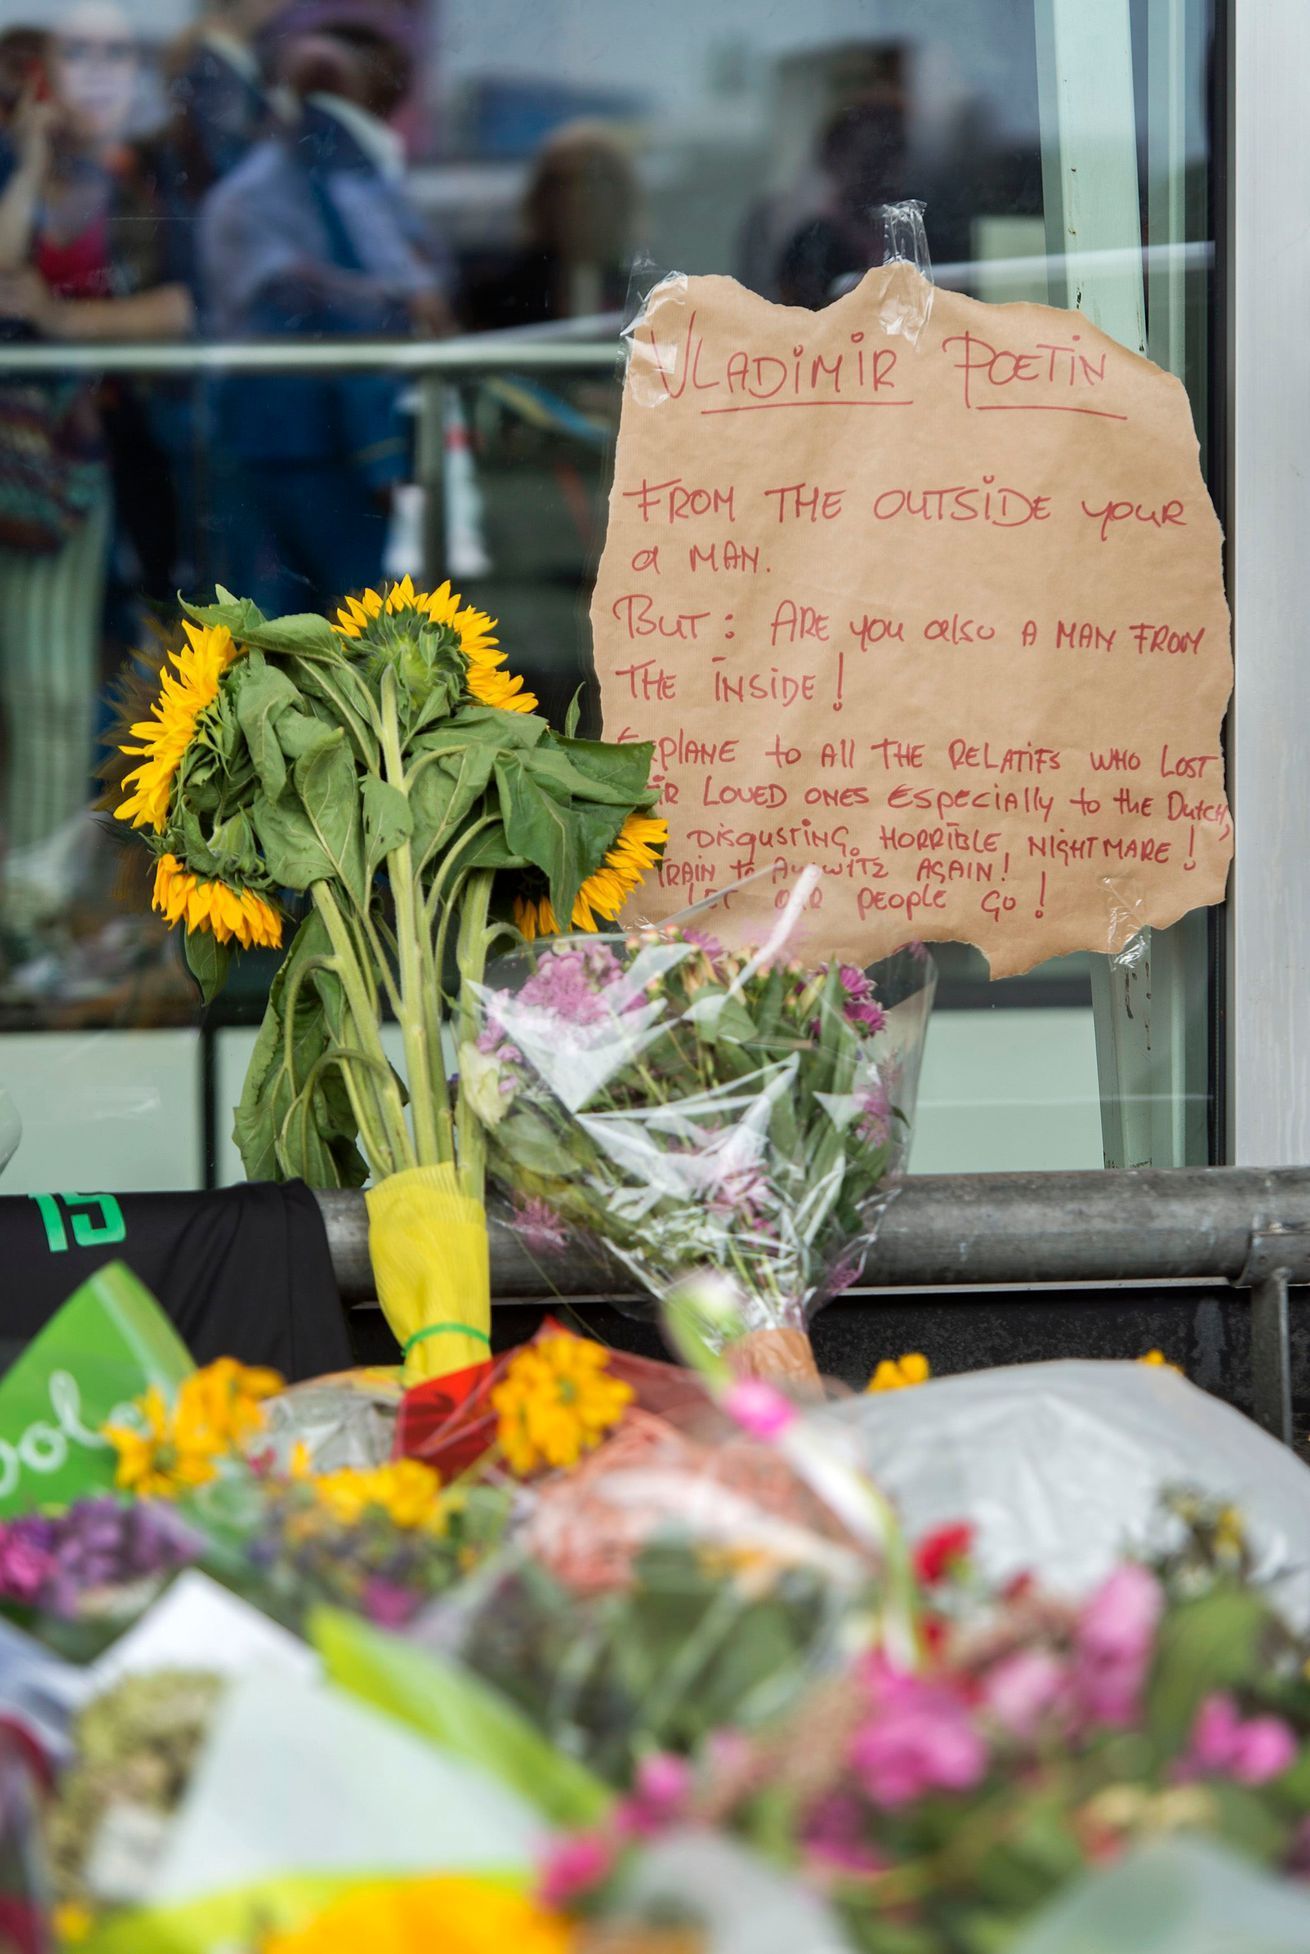 VLADIMIR POETIN
FROM THE OUTSIDE your
a MAN.
BUT: ARE you also A MAN FROM
THE INSIDE!
EXPLANE to All THE RELATIFS WHO LOST
LOVED ONES ESPECIAlly to the Dutch,
DISGUSTING. HORRIBLE, NIGHTMARE!
TRAIN to AGAIN!
LET OUR PEOPLE GO!
15